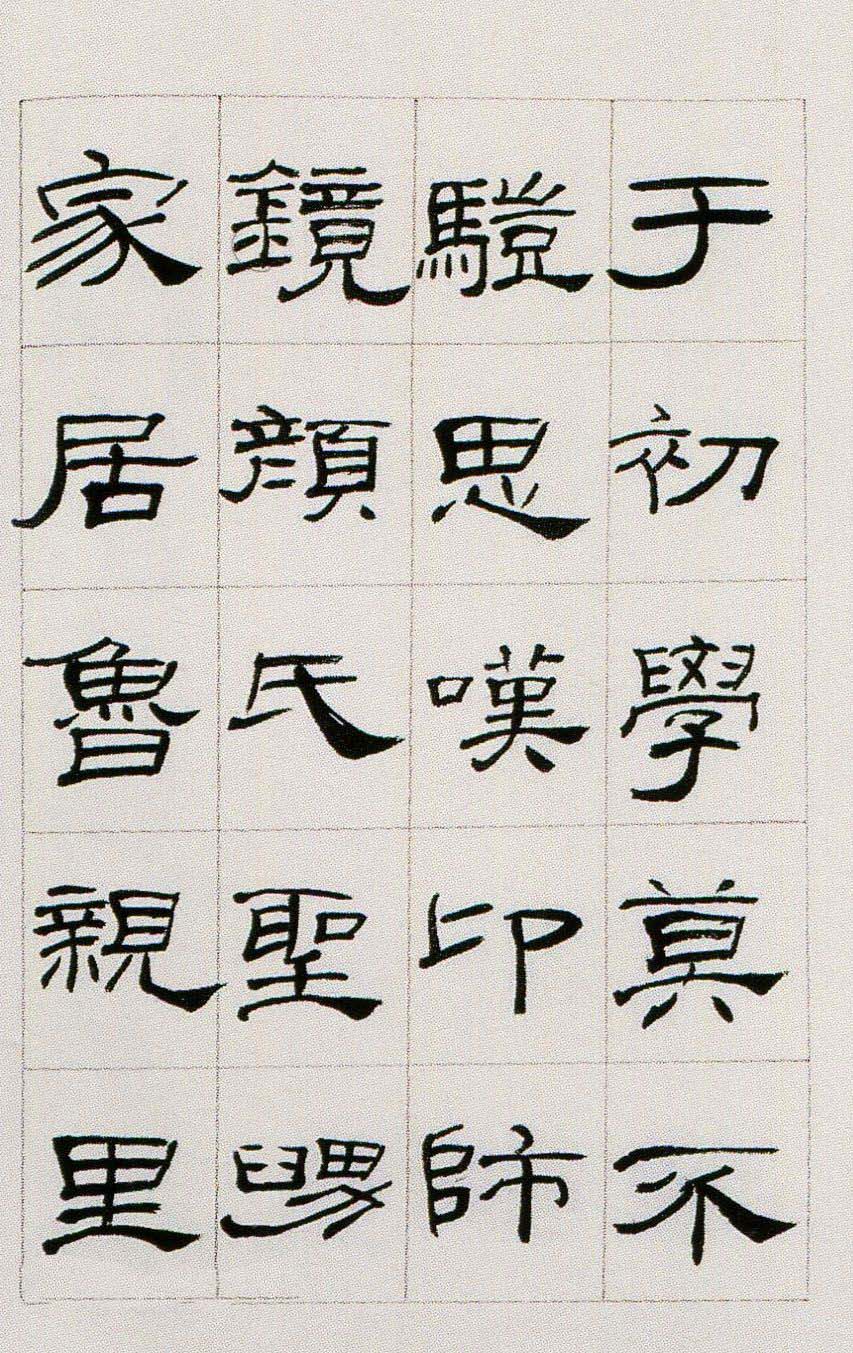 于初學莫不
𩥉思嘆卬師
鏡顏氏聖舅
家居魯親里